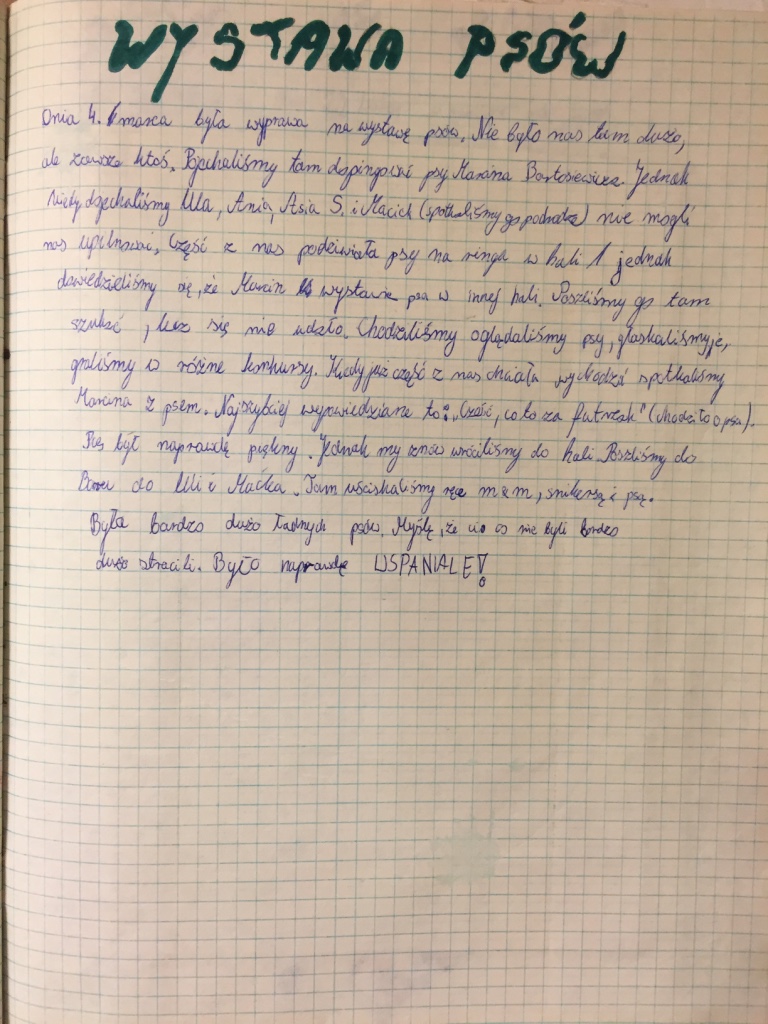 WYSTAWA PSÓW
Dnia 4. marca była wyprawa na wystawę psów. Nie było nas tam dużo,
ale zawsze ktoś. Pojechaliśmy tam dopingować psy Marcina Bartosiewicza. Jednak
kiedy dojechaliśmy Ula, Ania, Asia S. i Maciek (spotkaliśmy go po drodze) nie mogli
nas upilnować. Część z nas podziwiała psy na ringu w hali 1 jednak
dowiedzieliśmy się, że Marcin wystawia psa w innej hali. Poszliśmy go tam
szukać, lecz się nie udało. Chodziliśmy oglądaliśmy psy, głaskaliśmy je,
graliśmy w różne konkursy. Kiedy już część z nas chciała wychodzić spotkaliśmy
Marcina z psem. Najszybciej wypowiedziane to: „Cześć, co to za futrzak" (chodziło o psa).
Pies był naprawdę piękny. Jednak my znów wróciliśmy do hali. Poszliśmy do
do Uli i Maćka. Tam uściskaliśmy rękę
Było bardzo dużo ładnych psów. Myślę, że ci co nie byli bardzo
dużo stracili. Było naprawdę WSPANIALE!